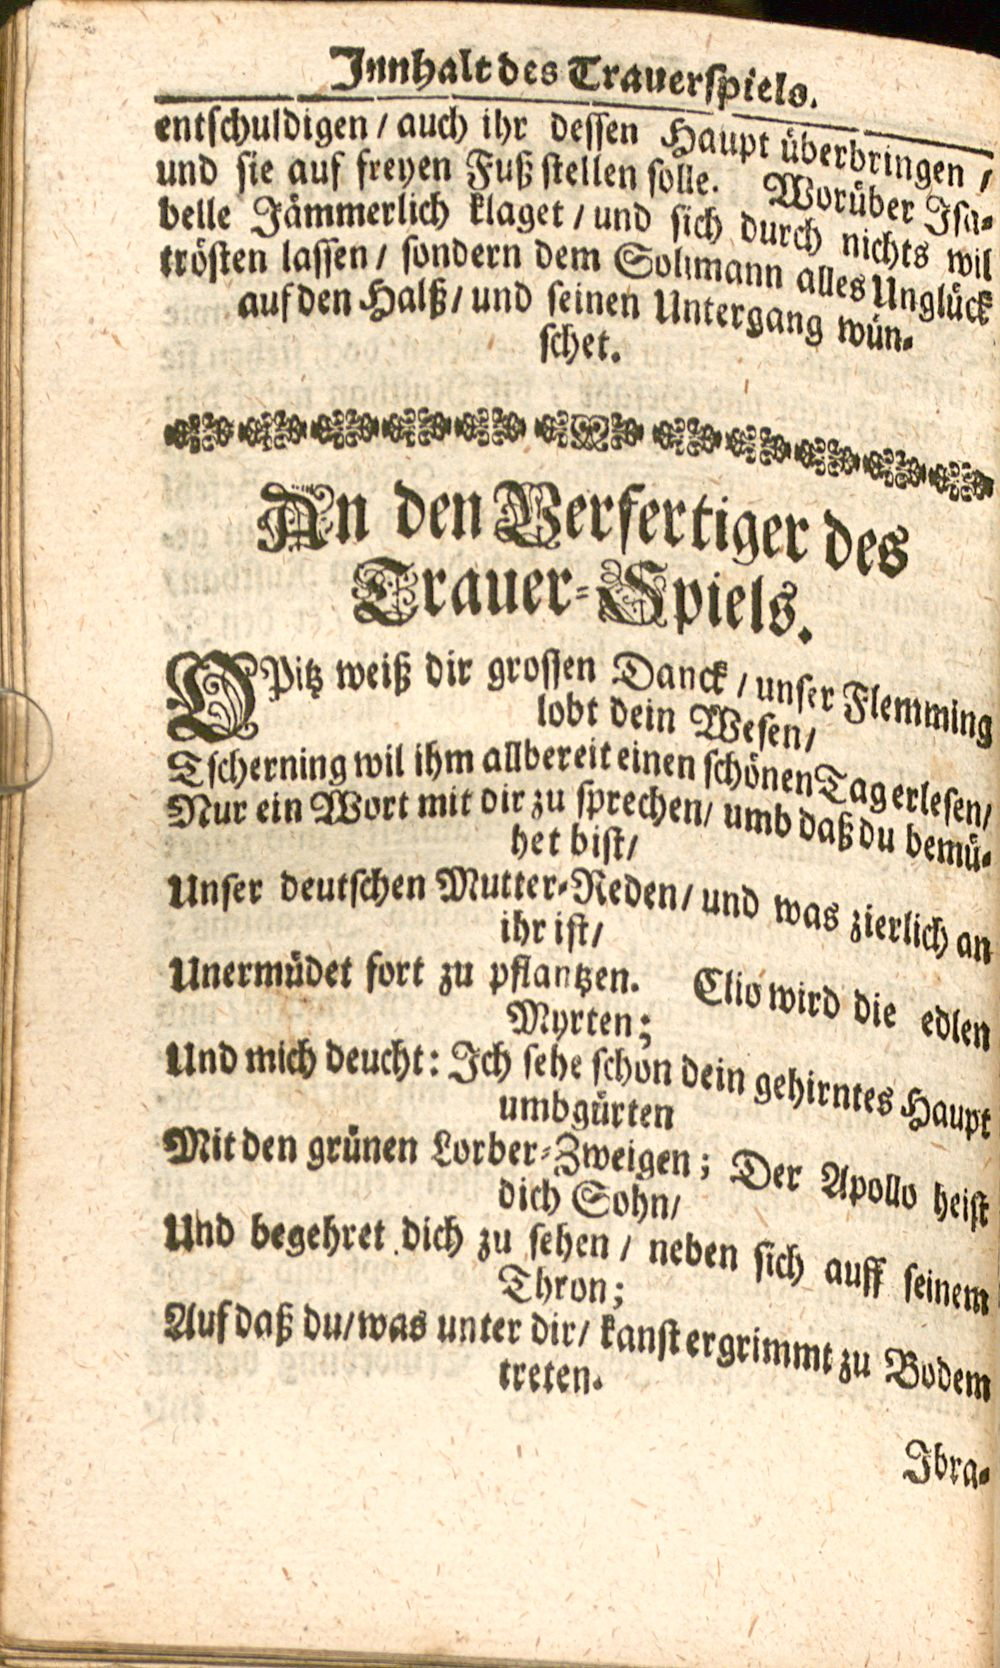 Innhalt des Trauerspiels.
entschuldigen / auch ihr dessen Haupt überbringen /
und sie auf freyen Fuß stellen solle. Worüber Isa-
belle Jämmerlich klaget / und sich durch nichts wil
trösten lassen / sondern dem Solimann alles Unglück
auf den Halß / und seinen Untergang wün-
schet.
An den Verfertiger des
Trauer-Spiels.
OPitz weiß dir grossen Danck / unser Flemming
lobt dein Wesen /
Tscherning wil ihm allbereit einen schönen Tag erlesen /
Nur ein Wort mit dir zu sprechen / umb daß du bemü-
het bist /
Unser deutschen Mutter-Reden / und was zierlich an
ihr ist /
Unermüdet fort zu pflantzen. Clio wird die edlen
Myrten;
Und mich deucht: Ich sehe schon dein gehirntes Haupt
umbgürten
Mit den grünen Lorber-Zweigen; Der Apollo heist
dich Sohn /
Und begehret dich zu sehen / neben sich auff seinem
Thron;
Auf daß du / was unter dir / kanst ergrimmt zu Bodem
treten.
Ibra-